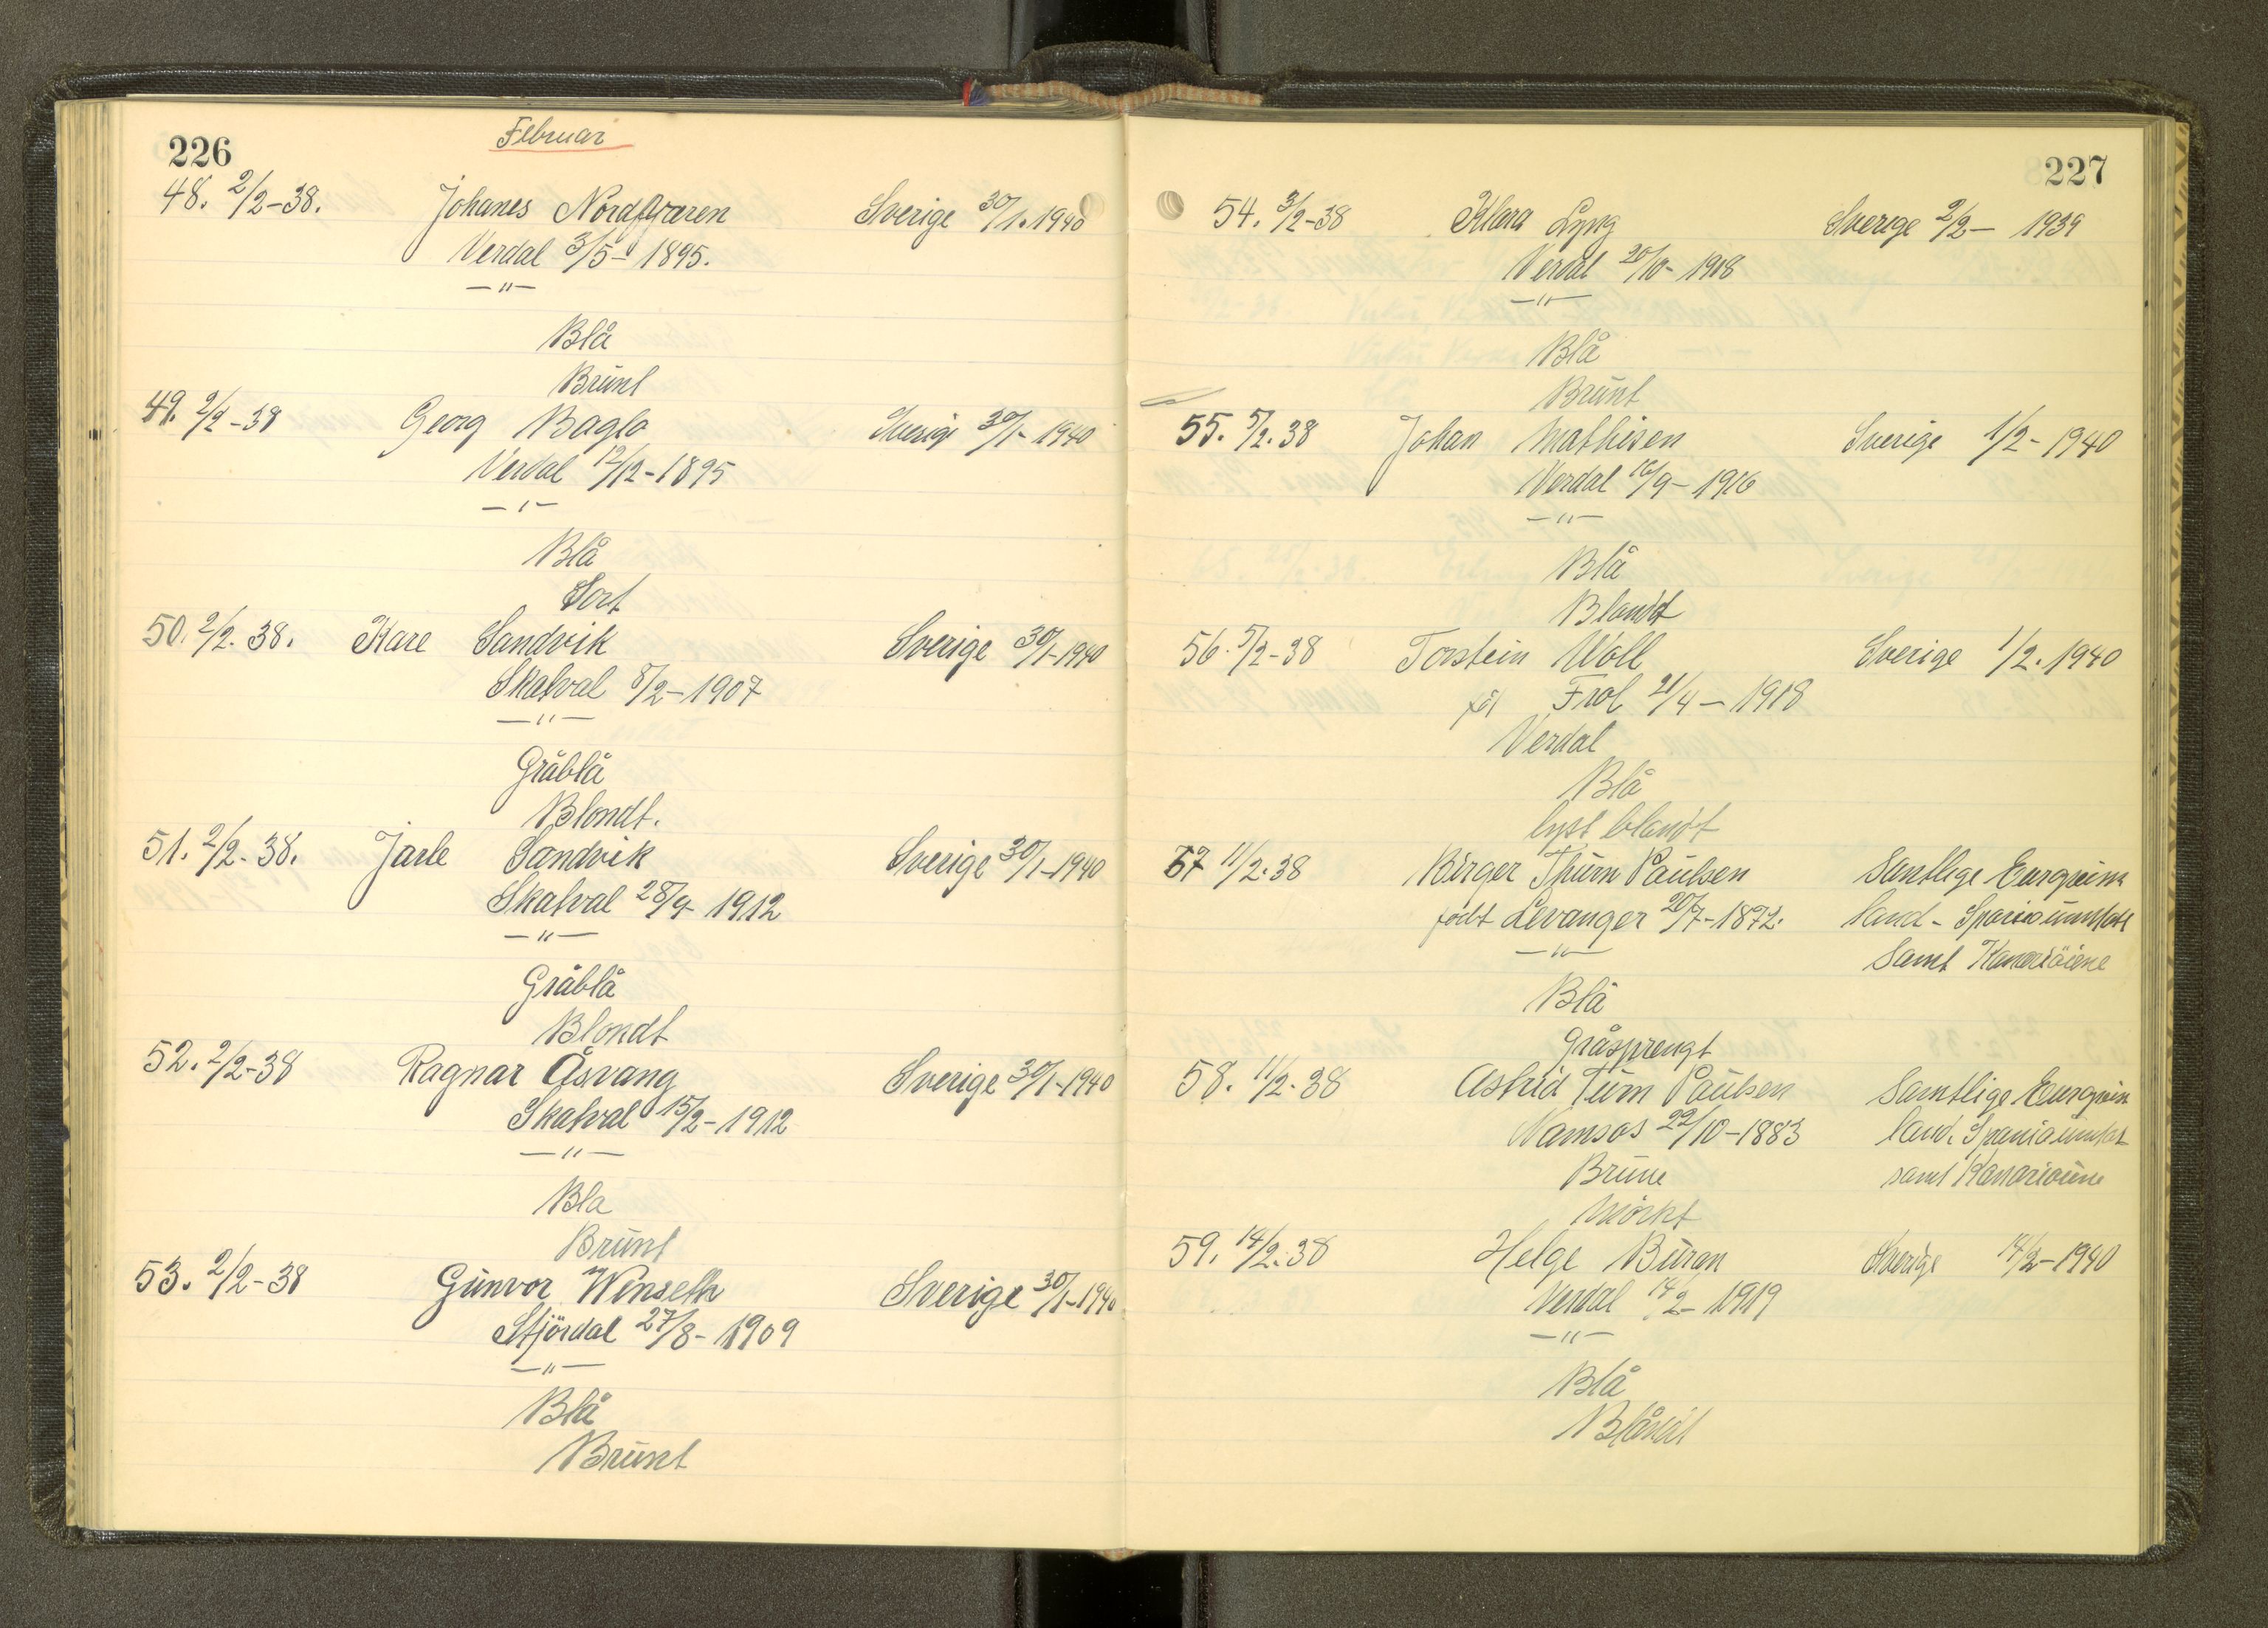 226
Februar
48. 2/2-38. Johanes Nordfjæren Sverige 30/1.1940
Verdal 3/5- 1895.
-"-
Blå
Brunt
49. 2/2-38 Georg Baglo Sverige 30/1- 1940
Verdal 12/12-1895
-"-
Blå
Sort
50. 2/2. 38. Kare Sandvik Sverige 30/1-1940
Skatval 8/2-1907
-"-
Gråblå
Blondt.
51. 2/2. 38. Jarle Sandvik Sverige 30/1-1940
Skatval 28/9- 1912
-"-
Gråblå
Blondt
52. 2/2-38 Ragnar Åsvang Sverige 30/1-1940
Skatval 15/2-1912
-"-
Bla
Brunt
53. 2/2-38 Gunvor Winseth Sverige 30/1-1940
Stjördal 27/8- 1909
-"-
Blå
Brunt
227
54. 3/2-38 Klara Lyng Sverige 2/2- 1939
Verdal 20/10- 1918
-"-
Blå
Brunt
55. 5/2.38 Johan Mathisen Sverige 1/2-1940
Verdal 16/9-1916
-"-
Blå
Blondt
56. 5/2-38 Torstein Woll Sverige 1/2.1940
Frol 21/4-1918
Verdal
Blå
lyst blondt
57 11/2.38 Birger Thurn Paulsen Samtlige
født Levanger 20/7-1872. land-
samt Kanariöiene
-"-
Blå
Gråsprengt
58. 11/2.38 Astrid Turn Paulsen Samtlige
Namsos 22/10-1883 land.
Brune samt
Mörkt
59. 14/2.38 Helge Burgn Sverige 14/2-1940
Verdal 14/2- 1919
-"-
Blå
Blondt